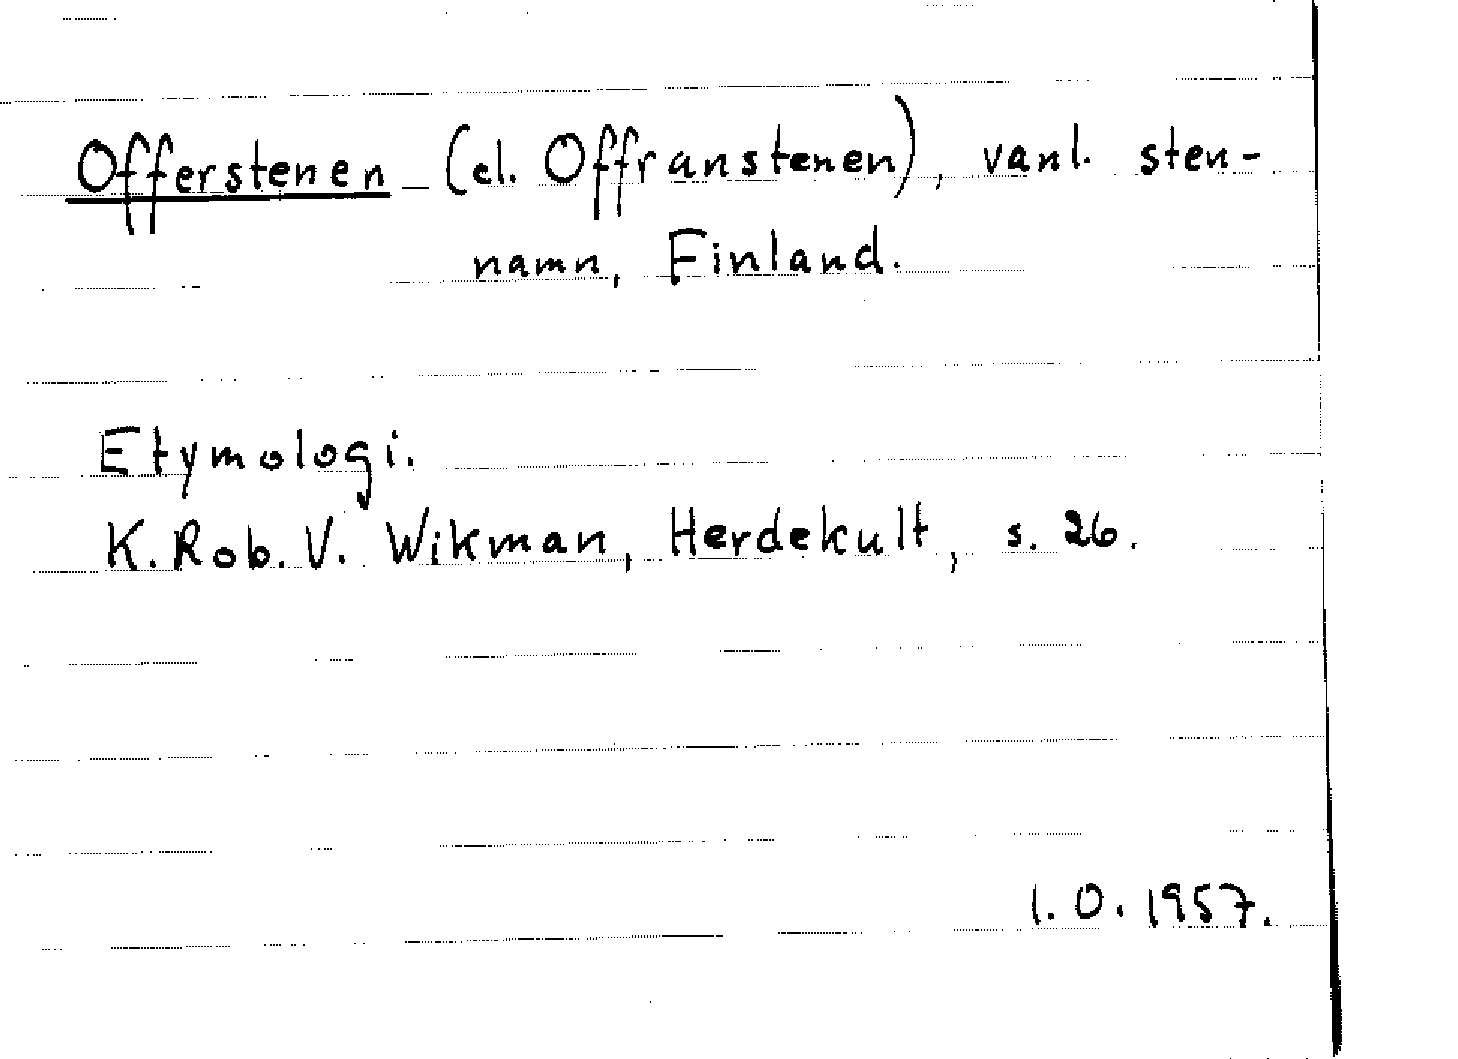 Offerstenen (el. Offranstenen), vanl. sten-
namn, Finland.
Etymologi.
K. Rob. V. Wikman, Herdekult, s. 26.
I. O. 1957.